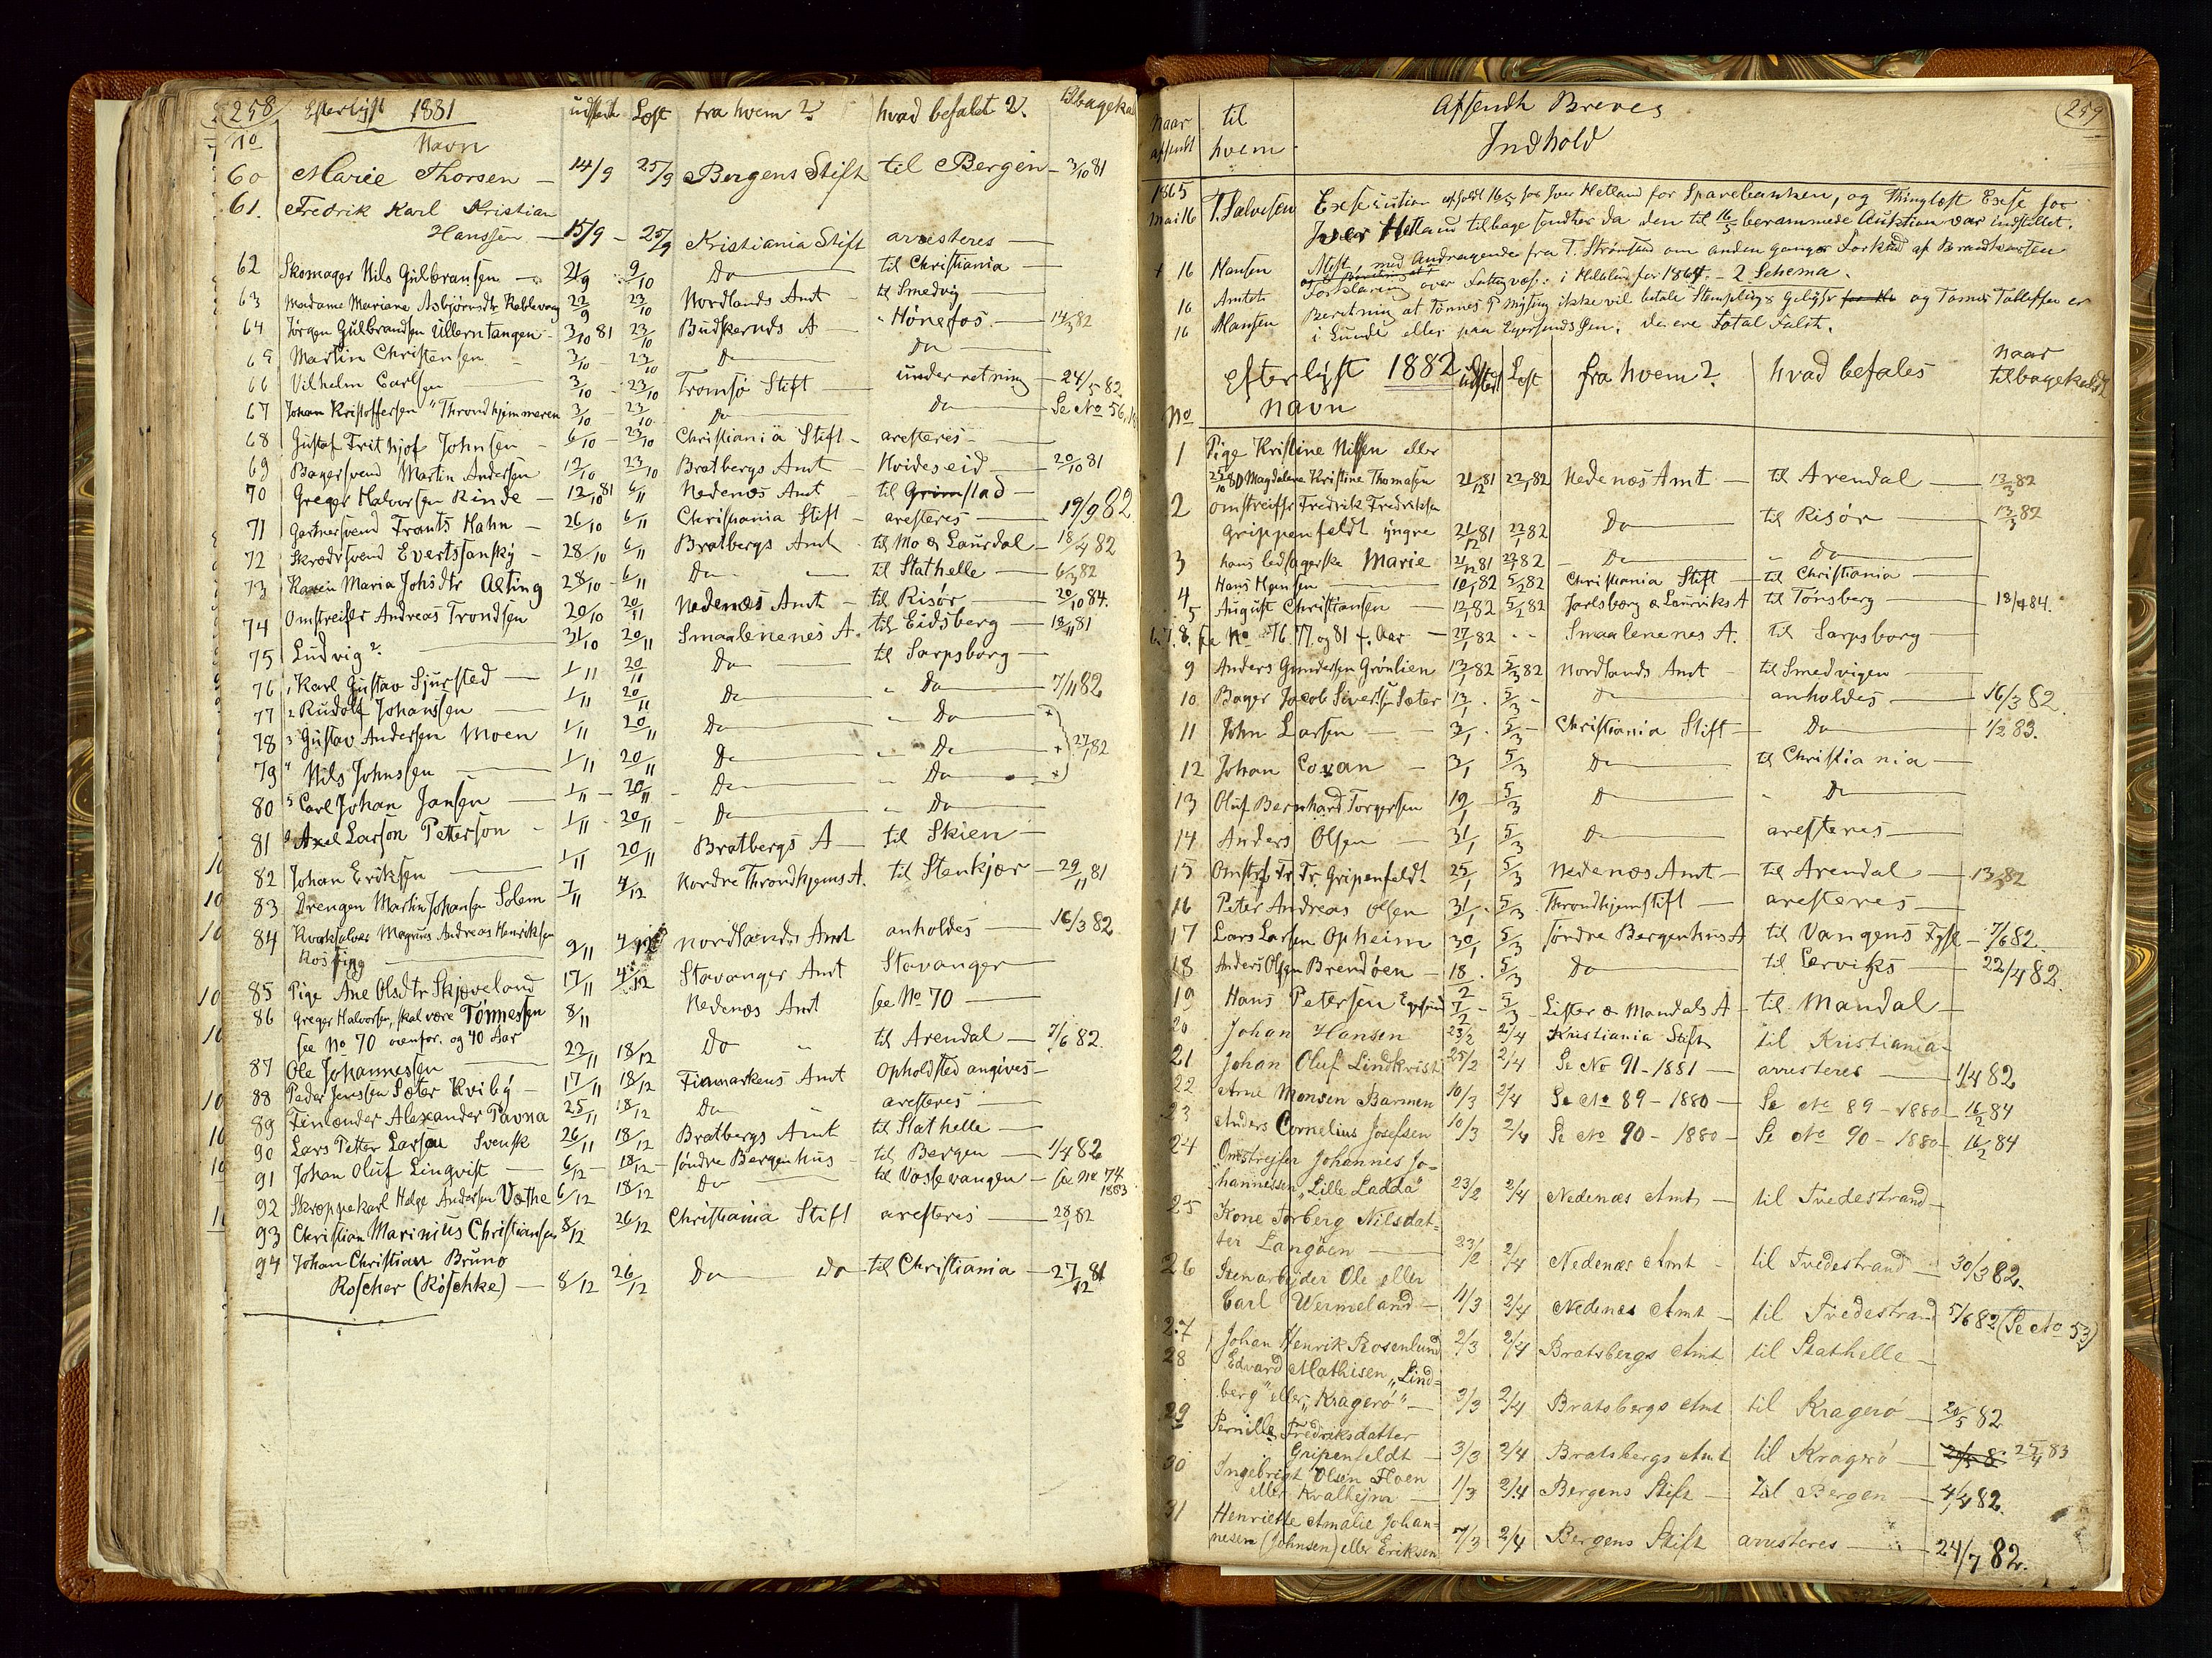 258 Efterlyst 1881 udstedt Læst fra hvem? hvad befalet? tilbagekal
No Navn
60 Marie Thorsen — 14/9 25/9 Bergens Stift til Bergen — 3/10 81
61. Fredrik Karl Kristian
Hanssen — 15/9 - 25/9 Kristiania Stift arresteres —
62 Skomager Nils Gulbransen — 21/9 9/10 Do — til Christiania —
63 Madame Mariane Asbjørnsdtr Koblevaag 22/9 23/10 Nordlands Amt til Smedvig
64 Jørgen Gulbrandsen Ullerntangen - 3/10 81 23/10 Budskeruds A — " Hønefos — 14/3 82
65 Martin Christensen 3/10 23/10 Do Do —
66 Vilhelm Carlsen 3/10 - 23/10 Tromsø Stift — underretning — 24/5 82
67 Johan Kristoffersen "Throndhjemmeren 3/10 - 23/10 Do — Do — Se No 56,
68 Gustaf Frithjof Johnsen - 6/10 - 23/10 Christiania Stift - aresteres —
69 Bagersvend Martin Andersen 12/10 23/10 Bratbergs Amt — Hvideseid — 20/10 81
70 Greger Halvorsen Rinde — 12/10 81 6/11 Nedenæs Amt — til Grimstad —
71 Gartnersvend Frants Hahn — 26/10 6/11 Christiania Stift - aresteres — 19/9 82
72 Skrædrsvend Evertssansky - 28/10 6/11 Bratbergs Amt - til Mo & Laurdal — 18/4 82
73 Karen Maria Johsdtr Alting 28/10 - 6/11 Do — til Stathelle — 6/3 82
74 Omstreifer Andreas Trondsen 20/10 20/11 Nedenæs Amt — til Risør — 20/10 84.
75 Ludvig? — 31/10 20/11 Smaalenenes A. til Eidsberg — 18/11 81
76 1 Karl Gustav Sjursted — 1/11 20/11 Do — til Sarpsborg —
77 2 Rudolf Johanssen — 1/11 20/11 Do " Do — 7/11 82
78 3 Gustav Andersen Moen 1/11 20/11 Do — " Do — +
79 4 Nils Johnssen — 1/11 20/11 Do — " Do — + 27/1 82
80 5 Carl Johan Jansen — 1/11 - 20/11 - Do — " Do — +
81 6 Axel Larson Petterson - 1/11 - 20/11 - Do — " Do —
82 Johan Eriksen — 1/11 20/11 Bratbergs A — til Skien —
83 Drengen Martin Johansen Solem 7/11 4/12 Nordre Throndhjems A. til Stenkjær — 29/11 81
84 Kvaksalver Magnus Andreas Henriksen
Rosting — 9/11 4/12 Nordlands Amt anholdes — 16/3 82
85 Pige Ane Olsdtr Skjæveland 17/11 4/12 Stavanger Amt Stavanger —
86 Greger Halvorsen, skal være Tønnesen 8/11 Nedenæs Amt see No 70 —
see No 70 ovenfor. og 40 Aar
87 Ole Johannessen — 22/11 18/12 Do " til Arendal — 7/6 82.
88 Peder Jenssen Sæter Kviby — 17/11 18/12 Finmarkens Amt Opholdsted angives —
89 Finlænder Alexander Pavna 25/11 18/12 Do aresteres —
90 Lars Petter Larsen Svensk 26/11 18/12 Bratbergs Amt til Stathelle —
91 Johan Oluf Linqvist — 6/12 - 18/12 - søndre Bergenhus - til Bergen — 1/4 82
92 Skreppekarl Helge Andersen Væthe 6/12 18/12 Do — til Vosse vangen — see No 74 1883
93 Christian Marinius Christiansen 8/12 26/12 Christiania Stift aresteres — 28/1 82
94 Johan Christian Bruno
Roscher (Røschke) — 8/12 26/12 Do — Do til Christiania — 27/12 81
Naar afsendt til hvem Afsendte Breves Indhold 259
1865
Mai 16 T. Salvesen Exsecution afholdt 16/5 hos Iver Hetland for Sparebanken, og Thinglæst Exse hos
Iver Hetland tilbage sendtes da den til 16/5 berammede Auktion var indstillet.
+ 16 Hansen med Andragende fra T. Strønstad om anden gangs Forkud af Brandvæsen
16 Amtet Forklaring over Fattigvæs: i Hetland for 1864. - 2 Schema.
16 Hansen Beretning at Tønnes ikke vil betale Stemplings Gebyhr og Tønnes Tollefsen er
i Lunde eller paa Egersunds gen. de ere Total Fallit.
Efterlyst 1882 udsted Læst fra hvem? hvad befales naar tilbagekaldt
No Navn
1 Pige Kristine Nilsen eller
25/10 80 Magdalene Kristine Thomasen 21/12 81 22/1 82 Nedenæs Amt — til Arendal — 13/3 82
2 Omstreiffr Fredrik Fredriksen
Grippenfeldt yngre 21/12 81 22/1 82 Do — til Risør — 13/3 82
3 hans ledsagerske Marie 21/12 81 22/1 82 Do — " Do —
4 Hans Hansen — 10/1 82 5/2 82 Christiania Stift — til Christiania —
5 August Christiansen — 12/1 82 5/2 82 Jarlsborg & Laurviks A til Tønsberg — 18/4 84.
6. 7. 8. see No 76. 77. og 81 f. Aar — 27/1 82 - - Smaalenenes A. til Sarpsborg —
9 Anders Gundersen Grønlien 13/1 82 5/3 82 Nordlands Amt til Smedvigen —
10 Bager Jacob Sivertsen Sæter 13/1 - 5/3 - Do — anholdes — 16/3 82.
11 John Larsen — 3/1 - 5/3 - Christiania Stift — Do — 1/2 83.
12 Johan Covan — 3/1 5/3 Do — til Christiania —
13 Oluf Bernhard Torgersen 19/1 5/3 Do — " Do —
14 Anders Olsen — 31/1 5/3 Do — aresteres —
15 Omstrf Fr. Fr. Gripenfeldt 25/1 5/3 Nedenæs Amt — til Arendal — 13/3 82
16 Peter Andreas Olsen 31/1 - 5/3 - Throndhjemstift — aresteres —
17 Lars Larsen Opheim 30/1 5/3 søndre Bergenhus A til Vangens Fgsl — 7/6 82.
18 Anders Olsen Brendøen — 18/2 - 5/3 Do — til Lerviks — 22/4 82.
19 Hans Petersen Egersund 7/2 - 5/3 - Lister & Mandals A - til Mandal —
20 Johan Hansen 23/2 2/4 Kristiania Stift til Kristiania —
21 Johan Oluf Lindkvist 25/2 2/4 Se No 91 - 1881 — arresteres — 1/4 82
22 Arne Monsen Barmen 10/3 2/4 Se No 89 - 1880 — Se No 89 - 1880 — 16/2 84
23 Anders Cornelius Josefsen 10/3 2/4 Se No 90 - 1880 — Se No 90 - 1880 — 16/2 84
24 Omstrejfer Johannes Jo-
hannessen "Lille Ladda" 23/2 2/4 Nedenæs Amt — til Tvedestrand —
25 Kone Torberg Nilsdat-
ter Langøen — 23/2 2/4 Nedenæs Amt - til Tvedestrand — 30/3 82.
26 Stenarbejder Ole eller
Carl Wermeland — 11/3 2/4 Nedenæs Amt — til Tvedestrand 5/6 82 (Se No 53)
27 Johan Henrik Rosenlund 2/3 2/4 Bratsbergs Amt til Stathelle —
28 Edvard Mathisen, "Lind-
berg" eller "Kragerø" — 3/3 2/4 Bratsbergs Amt til Kragerø — 20/5 82
29 Pernille Fredriksdatter
Gripenfeldt — 3/3 2/4 Bratsbergs Amt til Kragerø — 25/4 83
30 Ingebrigt Olsen Floen
eller Kvalhejm — 1/3 2/4 Bergens Stift — til Bergen — 4/4 82.
31 Henriette Amalie Johan-
nesen (Johnsen) eller Eriksen 7/3 2/4 Bergens Stift arresteres — 24/7 82.